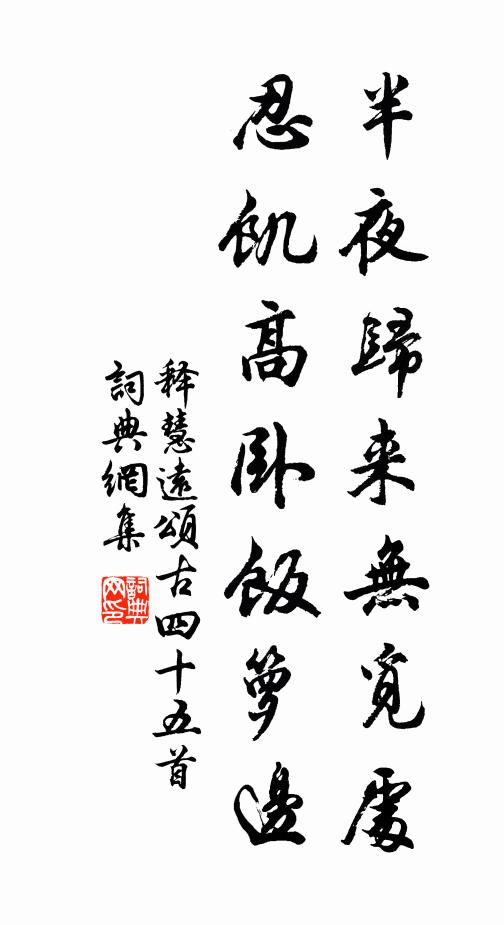 半夜歸来無覓處
忍飢高卧飯箩邊
释慧遠頌古四十五首
詞典網集
詞典网印